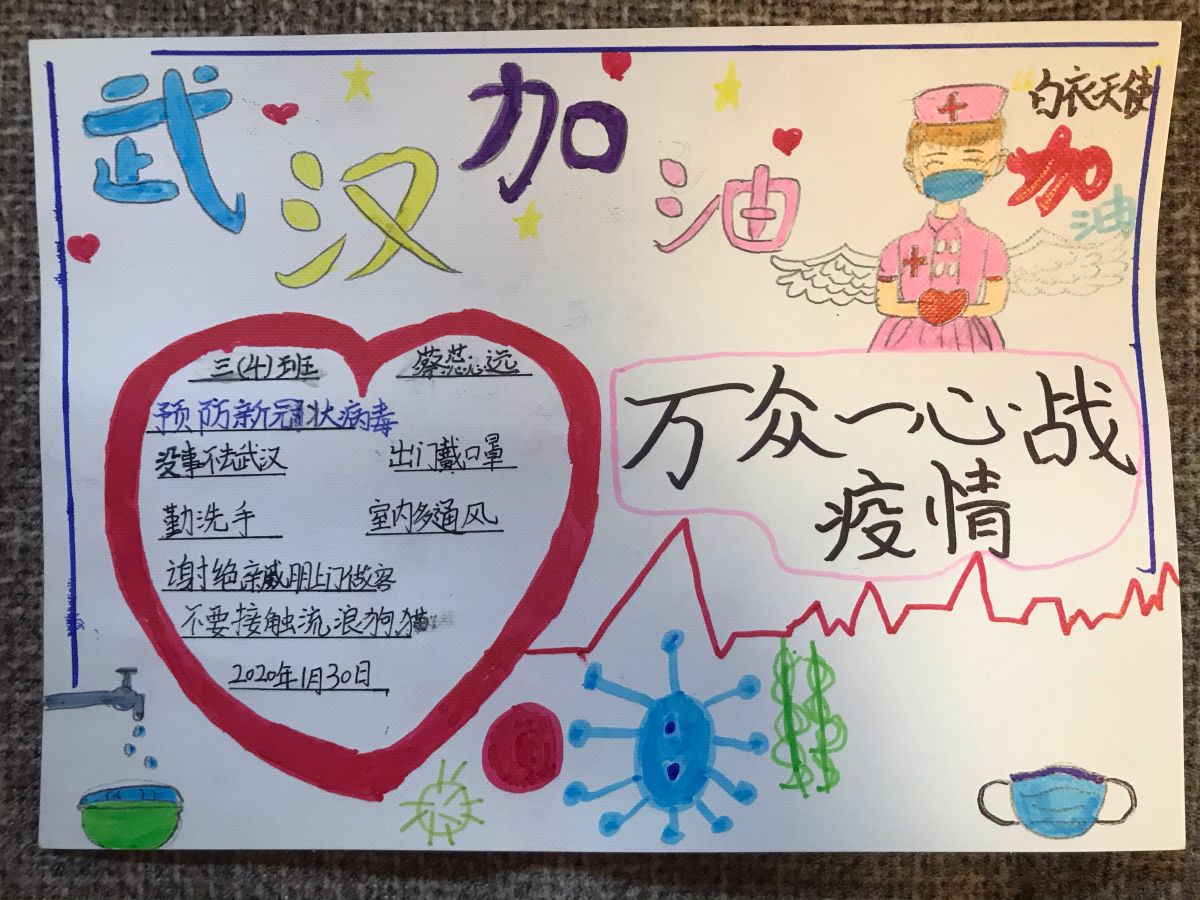 武汉加油
“白衣天使”
加油
三(4)班 蔡蕊远
预防新冠状病毒
没事不去武汉 出门戴口罩
勤洗手 室内多通风
谢绝亲戚朋上门做客
不要接触流浪狗猫
2020年1月30日
万众一心战
疫情